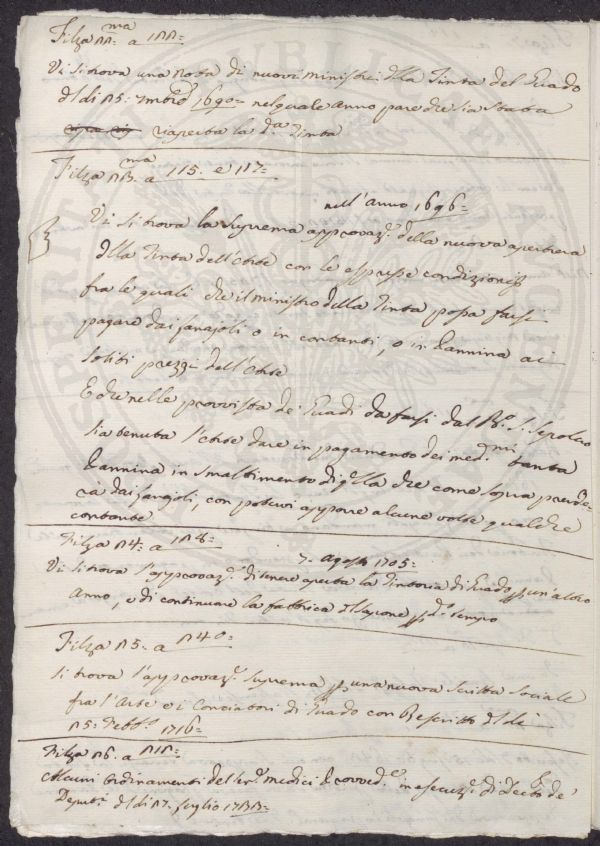 Filza 12.ma a 122=
Vi si trova una nota di nuovi ministri della Tinta del Guado
del di 25: 7mbre 1690= nel quale anno pare che sia stata
riaperta la d.a Tinta
Filza 13.ma a 115. e 117=
nell'anno 1696=
Vi si trova la suprema approvaz.e della nuova apertura
della Tinta dell'Arte con le espresse condizioni
fra le quali che il ministro della Tinta possa farsi
pagare dai lanajoli o in contanti, o in Lannina ai
soliti prezzi dell'Arte
E che nelle provvista de Guadi da farsi dal B.o S. Sepolcro
sia tenuta l'Arte dare in pagamento dei med.mi tanta
Lannina in smaltimento di q.lla che come sopra prende-
rà dai Lanajoli, con potervi apporre alcune volte qualche
contante
Filza 14: a 118=
7. Agosto 1705=
Vi si trova l'approvaz.e di tenere aperta la Tintoria di Guado p un'altro
Anno, e di continuare la fabbrica del sapone p d.o tempo
Filza 15= a 140=
Si trova l'approvaz.e suprema p una nuova scritta sociale
fra l'Arte e i Conciatori di Guado con Rescritto del di
15: Febb.o 1716=
Filza 16. a
Alcuni ordinamenti del Sr. medici Provved.e in esecuz.e di Decreto de
Deput.i del di 17. Luglio